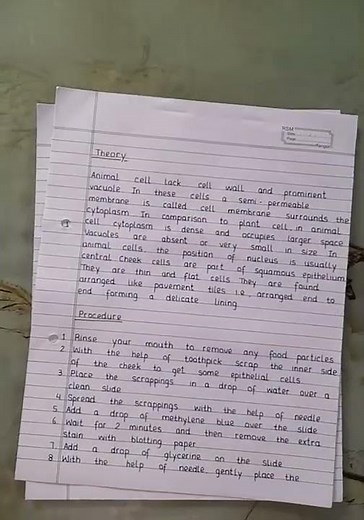 Theory
Animal cell lack cell wall and prominent
vacuole In these cells a semi-permeable
membrane is called cell membrane surrounds the
cytoplasm In comparison to plant cell, in animal
cell cytoplasm is dense and occupies larger space
Vacuoles are absent or very small in size In
animal cells the position of nucleus is usually
central Cheek cells are part of squamous epithelium
They are thin and flat cells They are found
arranged like pavement tiles i.e, arranged end to
end forming a delicate lining
Procedure
1 Rinse your mouth to remove any food particles
2. With the help of toothpick scrap the inner side
of the cheek to get some epithelial cells
3 Place the scrappings in a drop of water over a
clean slide
4. Spread the scrappings with the help of needle
5. Add a drop of methylene blue over the slide
6 Wait for 2 minutes and then remove the extra
stain with blotting paper
7. Add a drop of glycerine on the slide
8 With the help of needle gently place the